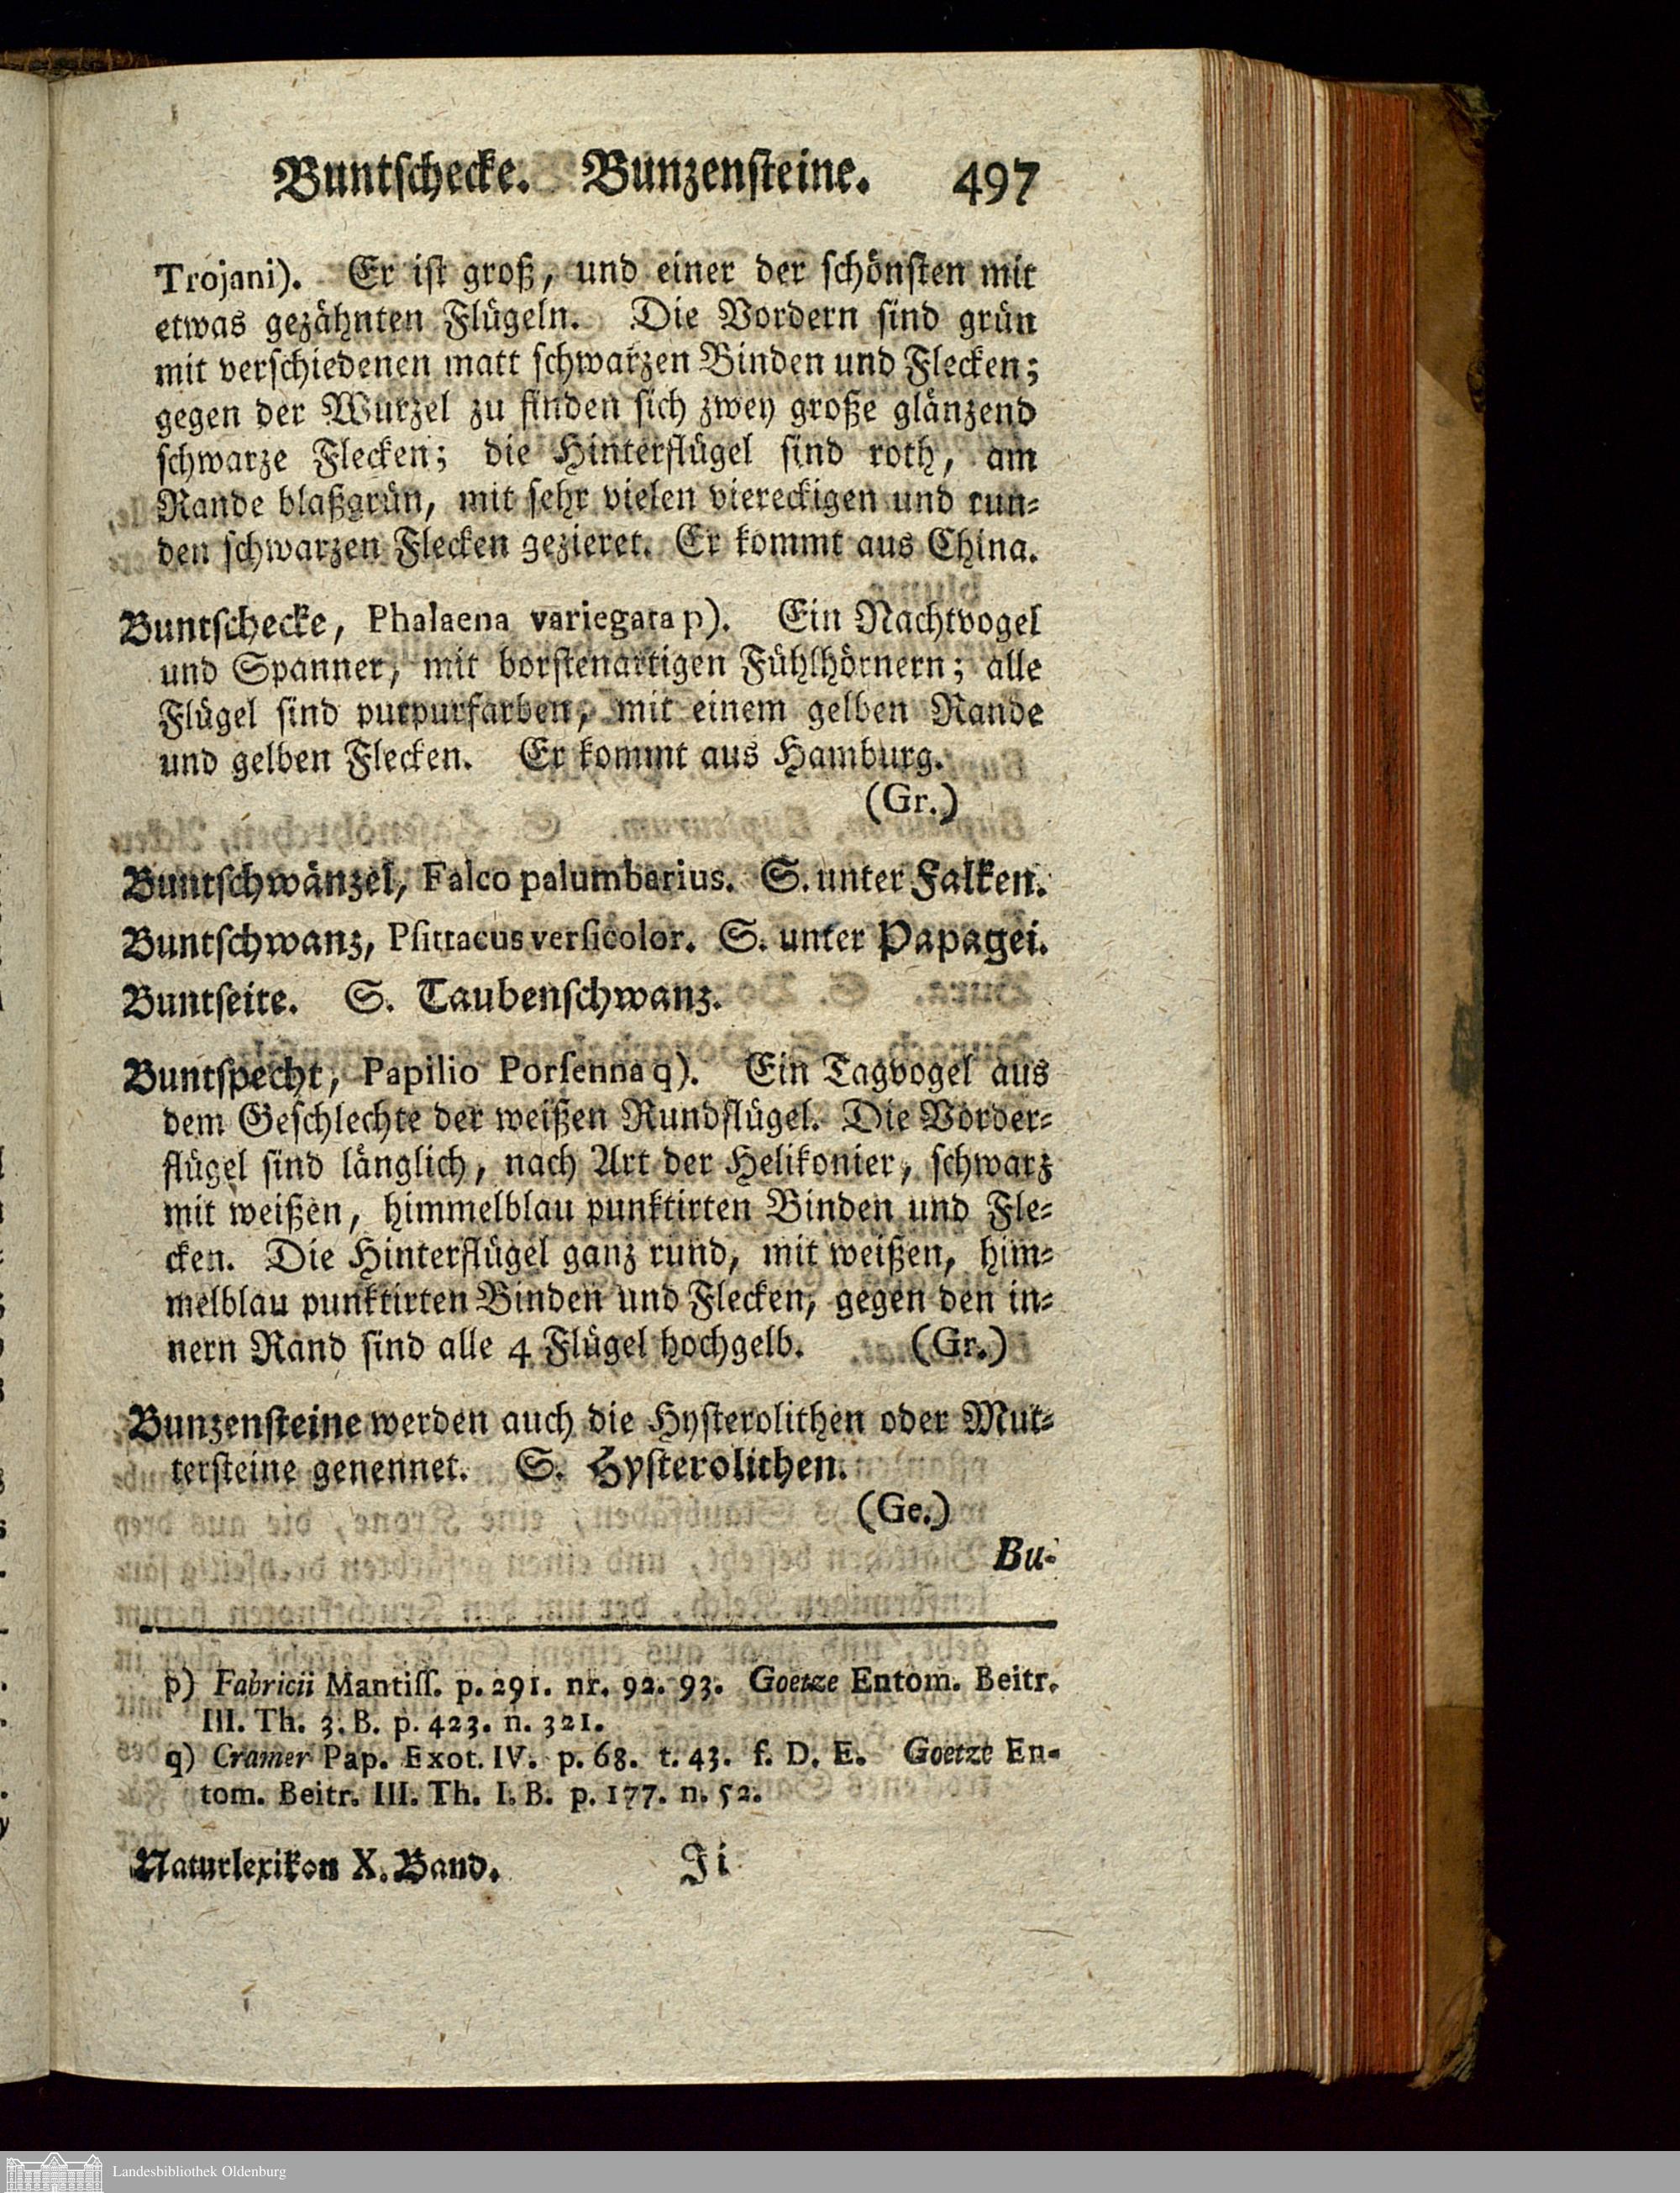 Buntſchecke. Bunzenſteine. 497
Trojani). Er iſt groß, und einer der ſchönſten mit
etwas gezähnten Flügeln. Die Vordern ſind grün
mit verſchiedenen matt ſchwarzen Binden und Flecken;
gegen der Wurzel zu finden ſich zwey große glänzend
ſchwarze Flecken; die Hinterflügel ſind roth, am
Rande blaßgrün, mit ſehr vielen viereckigen und run⸗
den ſchwarzen Flecken gezieret. Er kommt aus China.
Buntſchecke, Phalaena variegata p). Ein Nachtvogel
und Spanner, mit borſtenartigen Fühlhörnern; alle
Flügel ſind purpurfarben, mit einem gelben Rande
und gelben Flecken. Er kommt aus Hamburg.
(Gr.)
Buntſchwänzel, Falco palumbarius. S. unter Falken.
Buntſchwanz, Pſittacus verſicolor. S. unter Papagei.
Buntſeite. S. Taubenſchwanz.
Buntſpecht, Papilio Porſenna q). Ein Tagvogel aus
dem Geſchlechte der weißen Rundflügel. Die Vorder⸗
flügel ſind länglich, nach Art der Helikonier, ſchwarz
mit weißen, himmelblau punktirten Binden und Fle⸗
cken. Die Hinterflügel ganz rund, mit weißen, him⸗
melblau punktirten Binden und Flecken, gegen den in⸗
nern Rand ſind alle 4 Flügel hochgelb. (Gr.)
Bunzenſteine werden auch die Hyſterolithen oder Mut⸗
terſteine genennet. S. Hyſterolithen.
(Ge.)
Bu-
p) Fabricii Mantiſſ. p. 291. nr. 92. 93. Goetze Entom. Beitr.
III. Th. 3. B. p. 423. n. 321.
q) Cramer Pap. Exot. IV. p. 68. t. 43. f. D. E. Goetze En-
tom. Beitr. III. Th. I. B. p. 177. n. 52.
Naturlexikon X. Band. Ji
Landesbibliothek Oldenburg